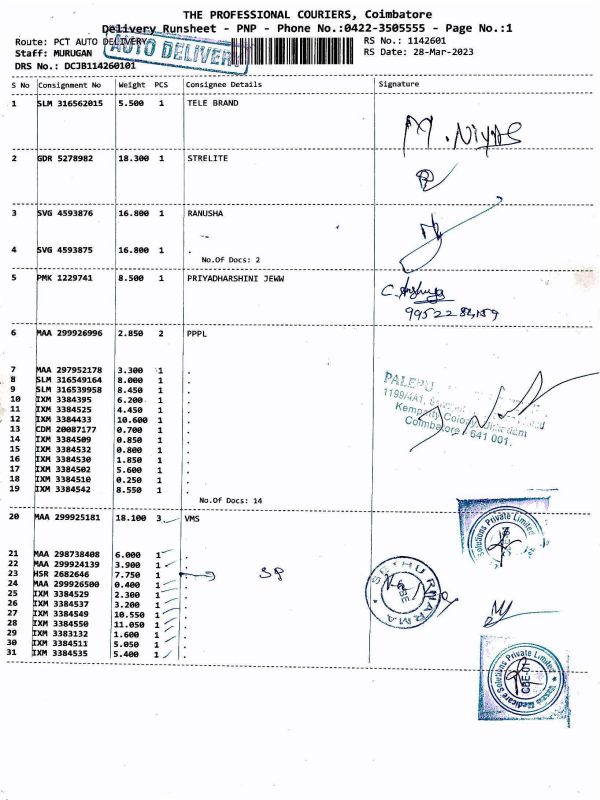 THE PROFESSIONAL COURIERS, Coimbatore
Delivery Runsheet - PNP - Phone No.:0422-3505555 - Page No.:1
Route: PCT AUTO DELIVERY
RS No.: 1142601
AUTO DELIVERY
Staff: MURUGAN
RS Date: 28-Mar-2023
DRS No.: DCJB114260101
S No Consignment No Weight PCS Consignee Details Signature
1 SLM 316562015 5.500 1 TELE BRAND
M. Niyas
2 GDR 5278982 18.300 1 STRELITE
3 SVG 4593876 16.800 1 RANUSHA
4 SVG 4593875 16.800 1 .
No.Of Docs: 2
5 PMK 1229741 8.500 1 PRIYADHARSHINI JEWW
6 MAA 299926996 2.850 2 PPPL
7 MAA 297952178 3.300 1 .
8 SLM 316549164 8.000 1 .
9 SLM 316539958 8.450 1 .
10 IXM 3384395 6.200 1 .
11 IXM 3384525 4.450 1 .
12 IXM 3384433 10.600 1 .
13 CDM 20087177 0.700 1 .
14 IXM 3384509 0.850 1 .
15 IXM 3384532 0.800 1 .
16 IXM 3384530 1.850 1 .
17 IXM 3384502 5.600 1 .
18 IXM 3384510 0.250 1 .
19 IXM 3384542 8.550 1 .
PALEPU
1199/4A1,
Kempatty Colony,
Coimbatore - 641 001.
No.Of Docs: 14
20 MAA 299925181 18.100 3 VMS
Solutions Private Limited
21 MAA 298738408 6.000 1 .
22 MAA 299924139 3.900 1 .
23 HSR 2682646 7.750 1 .
24 MAA 299926500 0.400 1 .
25 IXM 3384529 2.300 1 .
26 IXM 3384537 3.200 1 .
27 IXM 3384549 10.550 1 .
28 IXM 3384550 11.050 1 .
29 IXM 3383132 1.600 1 .
30 IXM 3384511 5.050 1 .
31 IXM 3384535 5.400 1 .
SETHU RMARMA
CBE
Medicare Solutions Private Limited